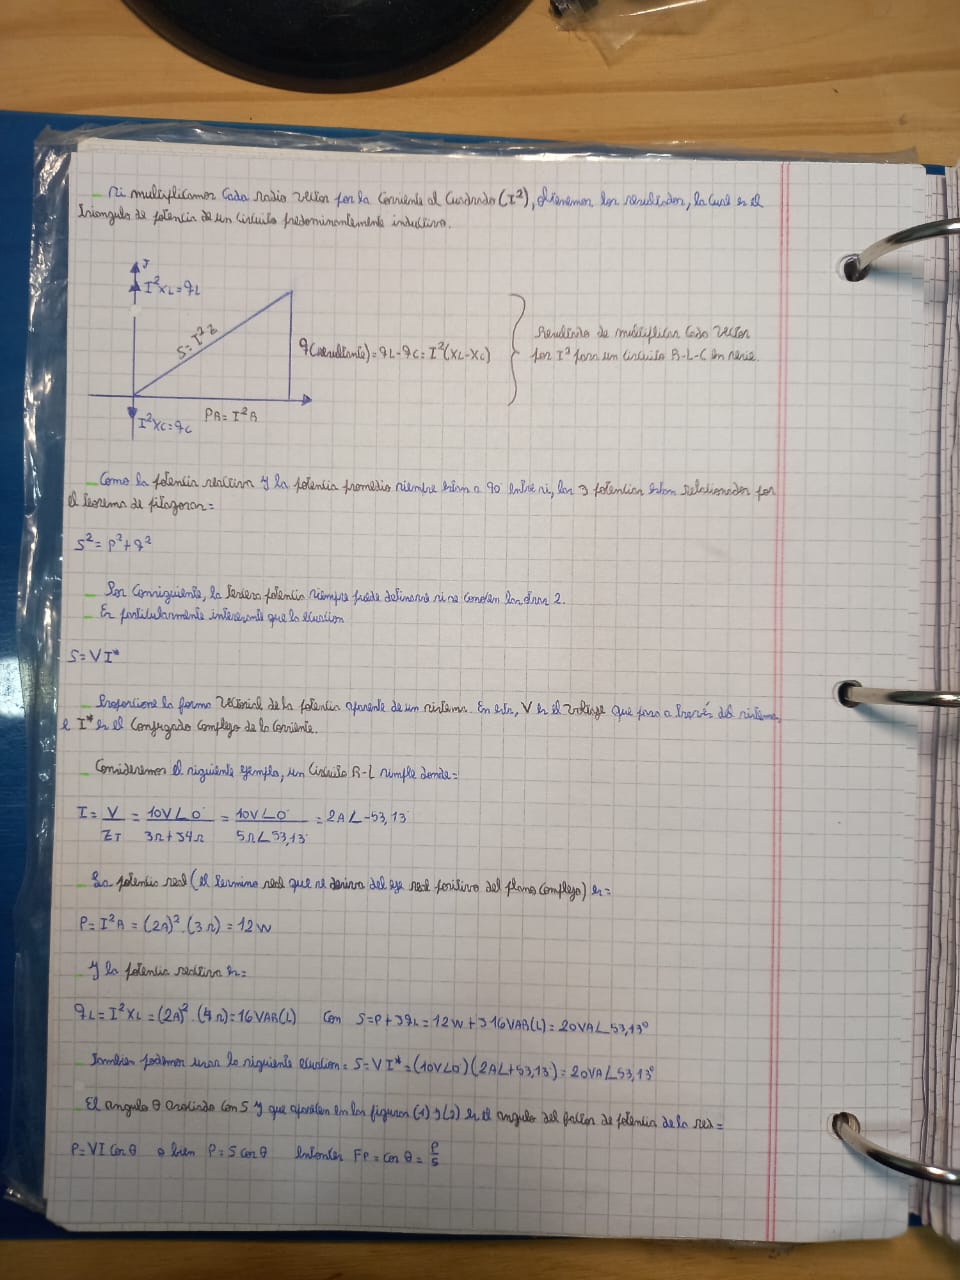 Si multiplicamos Cada radio vector por la Corriente al Cuadrado (I²), obtenemos los resultados, la cual es el
triangulo de potencia de un circuito predominantemente inductivo.
J
I²XL=qL
S=I²Z
q(resultante)=qL-qC=I²(XL-XC)
Resultado de multiplicar Cada Vector
por I² para un circuito R-L-C en serie.
PR=I²R
I²XC=qC
Como la potencia reactiva y la potencia promedio siempre estan a 90° entre si, las 3 potencias estan relacionadas por
el teorema de pitagoras=
S²=P²+q²
Por Consiguiente, la tercera potencia siempre puede definirse si se conocen las otras 2.
Es particularmente interesante que la ecuacion
S=VI*
Proporcione la forma Vectorial de la potencia aparente de un sistema. En esta, V es el Voltaje que pasa a través del sistema,
e I* es el Conjugado Complejo de la Corriente.
Consideremos el siguiente ejemplo, un Circuito R-L simple donde=
I= V/ZT = 10V∠0°/3Ω+J4Ω = 10V∠0°/5Ω∠53,13° = 2A∠-53,13°
La potencia real (el termino real que se deriva del eje real positivo del plano Complejo) es=
P=I²R=(2A)².(3Ω)=12W
Y la potencia reactiva es=
qL=I²XL=(2A)².(4Ω)=16VAR(L) Con S=P+JqL=12W+J16VAR(L)=20VA∠53,13°
Tambien podemos usar la siguiente ecuacion= S=VI*=(10V∠0°)(2A∠+53,13°)=20VA∠53,13°
El angulo θ asociado con S y que aparecen en las figuras (1) y (2) es el angulo del factor de potencia de la red=
P=VI Cos θ o bien P=S Cos θ Entonces FP=Cos θ= P/S